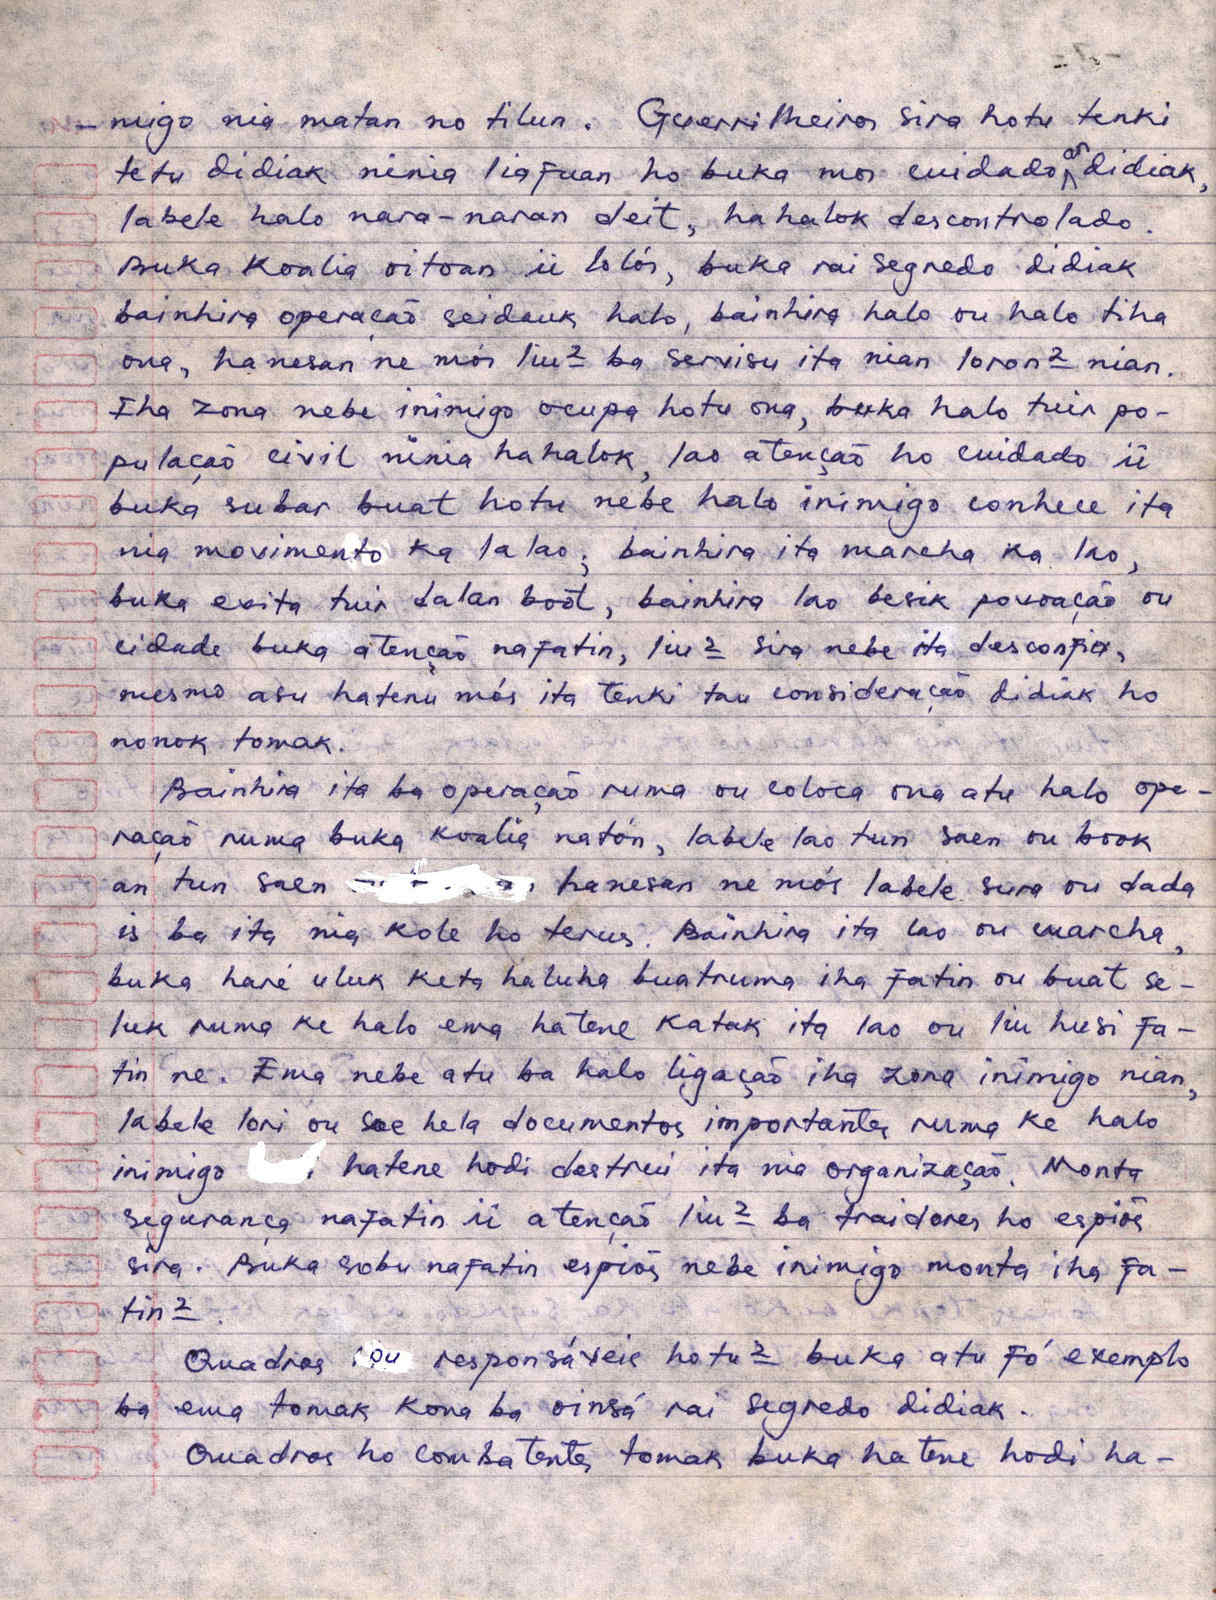 -7-
-migo nia matan no tilun. Guerrilheiros sira hotu tenki
tetu didiak ninia liafuan ho buka mos cuidado an didiak,
labele halo naran-naran deit, hahalok descontrolado.
Buka koalia oitoan ii lolós, buka rai segredo didiak
bainhira operação seidauk halo, bainhira halo ou halo tiha
ona, hanesan ne mós liu2 ba servisu ita nian loron2 nian.
Iha zona nebe inimigo ocupa hotu ona, buka halo tuir po-
pulação civil ninia hahalok, lao atenção ho cuidado ii
buka subar buat hotu nebe halo inimigo conhece ita
nia movimento ka lalao; bainhira ita marcha ka lao,
buka evita tuir dalan boot, bainhira lao besik povoação ou
cidade buka atenção nafatin, liu2 sira nebe ita desconfia,
mesmo asu hatenu mós ita tenki tau consideração didiak ho
nonok tomak.
Bainhira ita ba operação ruma ou coloca ona atu halo ope-
ração ruma buka koalia natón, labele lao tun saen ou book
an tun saen hanesan ne mós labele sura ou dada
is ba ita nia kole ho terus. Bainhira ita lao ou marcha,
buka haré uluk keta haluha buatruma iha fatin ou buat se-
luk ruma ke halo ema hatene katak ita lao ou liu husi fa-
tin ne. Ema nebe atu ba halo ligação iha zona inimigo nian,
labele lori ou soe hela documentos importantes ruma ke halo
inimigo hatene hodi destrui ita nia organização. Monta
segurança nafatin ii atenção liu2 ba traidores ho espiõs
sira. Buka sobu nafatin espiõs nebe inimigo monta iha fa-
tin2.
Quadros ou responsáveis hotu2 buka atu fó exemplo
ba ema tomak kona ba oinsá rai segredo didiak.
Quadros ho combatentes tomak buka hatene hodi ha-